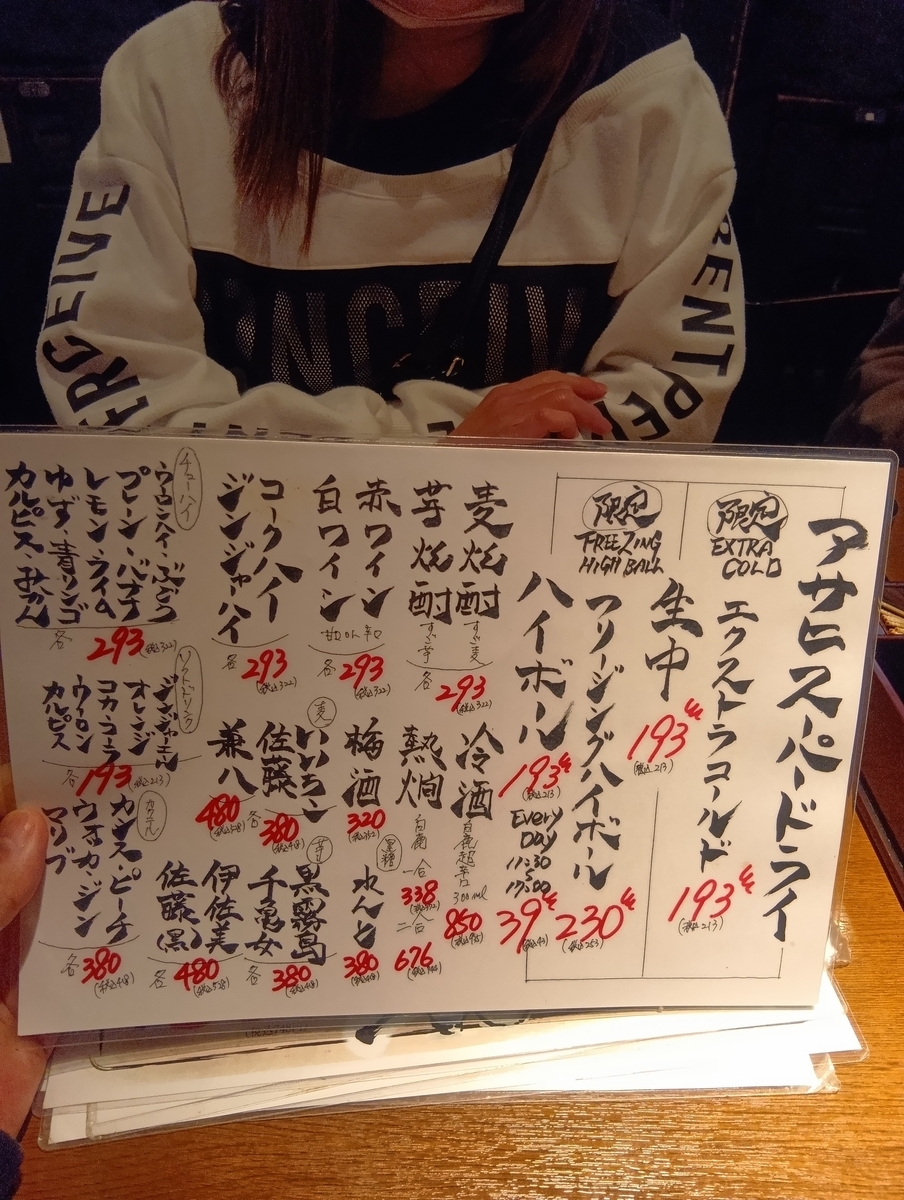 アサヒスーパードライ
限定
EXTRA
COLD
エクストラコールド
193
(税込213)
生中
193
(税込213)
限定
FREEZING
HIGH BALL
フリージングハイボール
230
(税込253)
ハイボール
193
(税込213)
EVERY
DAY
11:30
17:00
39
(税込43)
麦焼酎
すご麦
芋焼酎
すご芋
各293
(税込322)
赤ワイン
白ワイン
各293
(税込322)
コークハイ
ジンジャーハイ
各293
(税込322)
チューハイ
ウーロンハイ・ぶどう
プレーン・バナナ
レモン・ライム
ゆず・青リンゴ
カルピス・みかん
各293(税込322)
冷酒
白鹿超辛口
300ml
850
熱燗
白鹿
一合
338
二合
676
梅酒
320
(税込352)
黒糖
れんと
380
(税込418)
麦
いいちこ
佐藤
各380
(税込418)
兼八
480
(税込528)
芋
黒霧島
千亀女
各380
(税込418)
伊佐美
佐藤(黒)
各480
(税込528)
ソフトドリンク
ジンジャエール
オレンジ
コカ・コーラ
ウーロン
カルピス
各193(税込213)
カクテル
カシス・ピーチ
ウォッカ・ジン
マリブ
各380
(税込418)